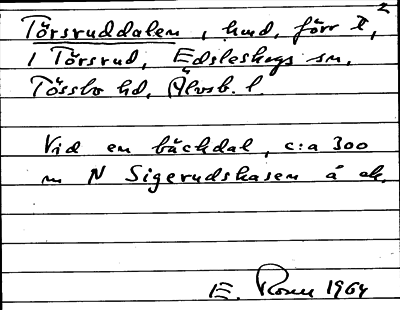 Törsruddalen, hmd, förr t,²
1 Törsrud, Edsleskogs sn,
Tössbo hd, Älvsb. l.
Vid en bäckdal, c:a 300
m N Sigerudshasen å ek.
E. Rosell 1964